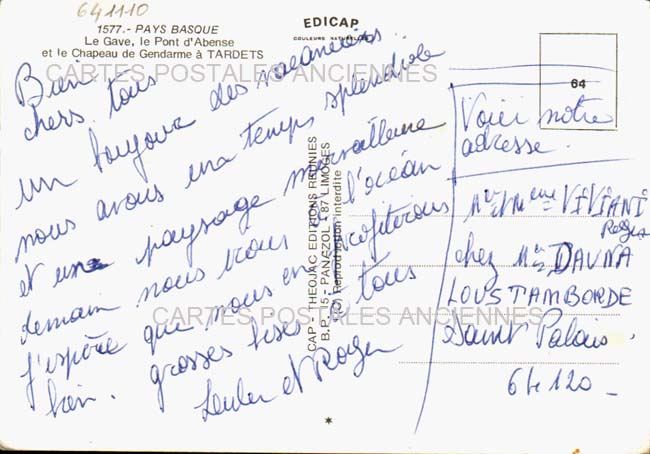 641110
1577.- PAYS BASQUE
Le Gave, le Pont d'Abense
et le Chapeau de Gendarme à TARDETS
EDICAP
COULEURS NATURELLES
64
CARTES POSTALES ANCIENNES
Bien
chers tous
un bonjour des vacanciers
nous avons un temps splendide
et un paysage merveilleux
demain nous irons l'océan
j'espère que nous en profiterons
bien. grosses bises à tous
et Roger
CAP - THEOJAC EDITIONS REUNIES
B.P. 15 - PANAZOL - 87 LIMOGES
(C) Reproduction interdite
CARTES POSTALES ANCIENNES
Voici notre
adresse.
Mr et Mme VIVIANI
Roger
chez Mr DAVNA
LOUSTAMBORDE
Saint Palais
64120